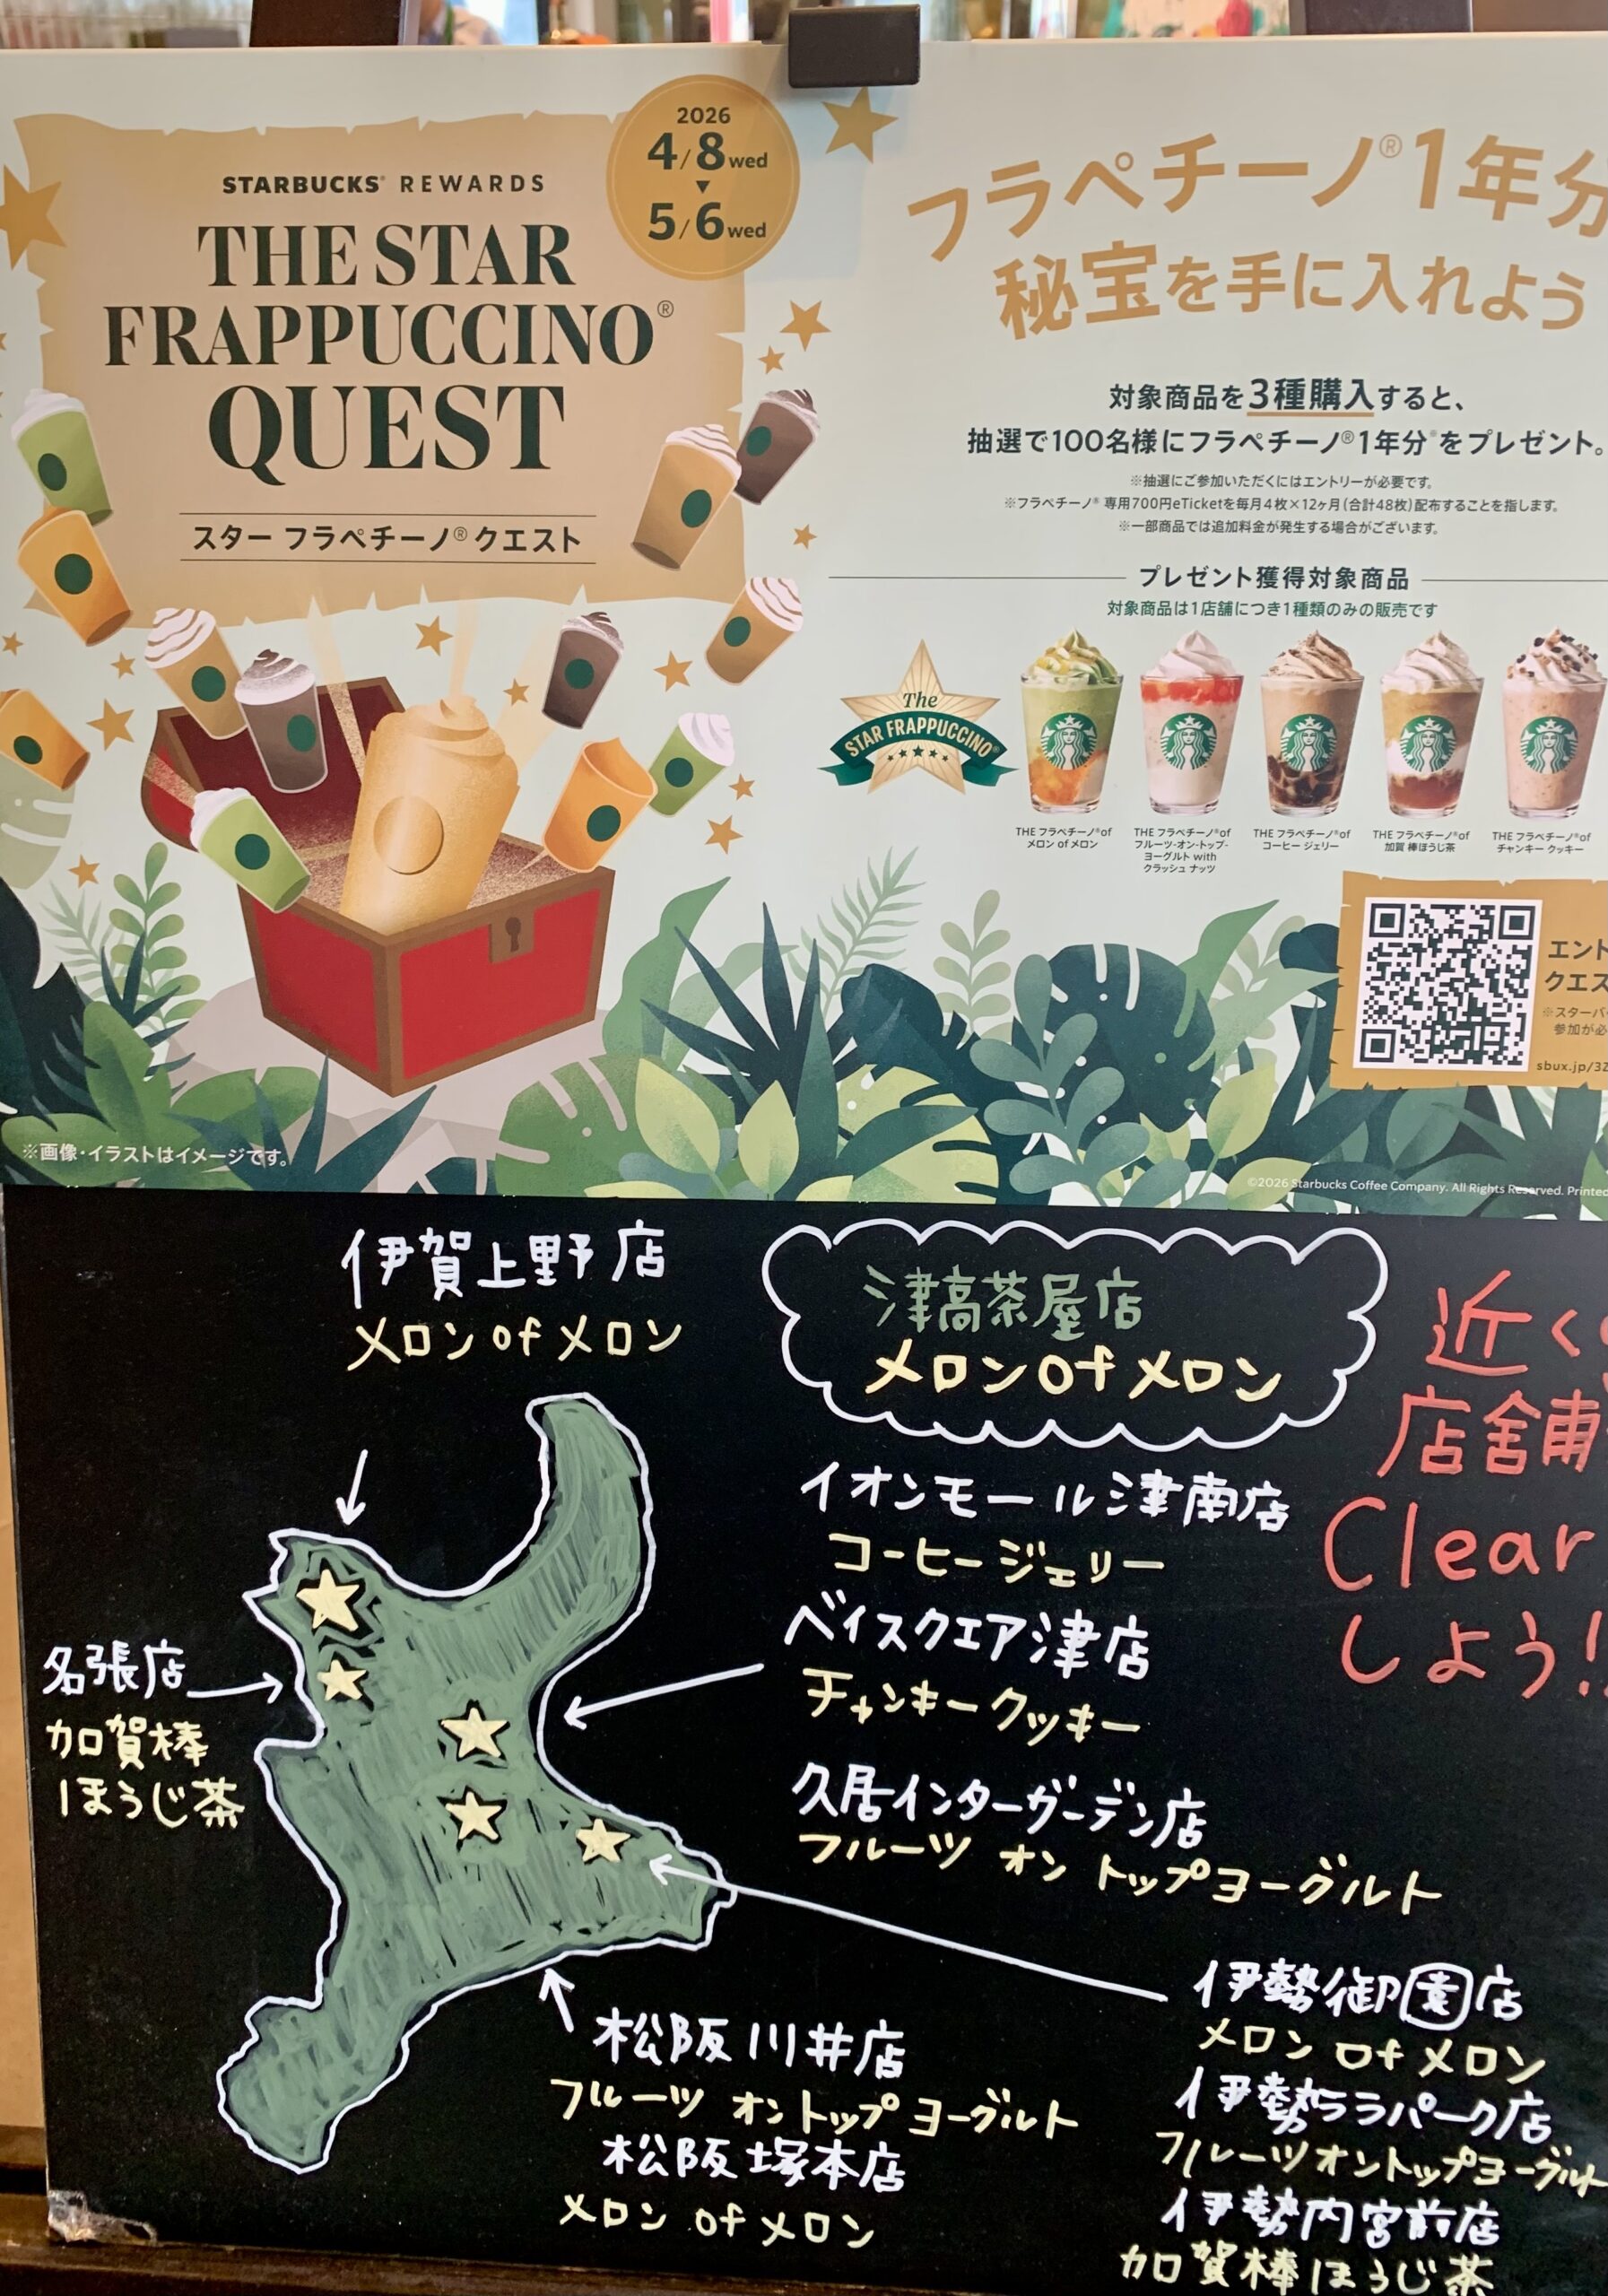 STARBUCKS® REWARDS
THE STAR
FRAPPUCCINO®
QUEST
スター フラペチーノ® クエスト
2026
4/8wed
▼
5/6wed
フラペチーノ®1年分
秘宝を手に入れよう
対象商品を3種購入すると、
抽選で100名様にフラペチーノ®1年分※をプレゼント。
※抽選にご参加いただくにはエントリーが必要です。
※フラペチーノ® 専用700円eTicketを毎月4枚×12ヶ月(合計48枚)配布することを指します。
※一部商品では追加料金が発生する場合がございます。
プレゼント獲得対象商品
対象商品は1店舗につき1種類のみの販売です
The
STAR FRAPPUCCINO®
THE フラペチーノ®of
メロン of メロン
THE フラペチーノ®of
フルーツ-オン-トップ-
ヨーグルト with
クラッシュ ナッツ
THE フラペチーノ®of
コーヒー ジェリー
THE フラペチーノ®of
加賀 棒ほうじ茶
THE フラペチーノ®of
チャンキー クッキー
エント
クエス
※スターバ
参加が必
sbux.jp/32
※画像・イラストはイメージです。
©2026 Starbucks Coffee Company. All Rights Reserved. Printed
伊賀上野店
メロン of メロン
津高茶屋店
メロン Of メロン
近くの
店舗
Clear
しよう!!
イオンモール津南店
コーヒージェリー
ベイスクエア津店
チャンキークッキー
久居インターガーデン店
フルーツ オン トップヨーグルト
名張店
加賀棒
ほうじ茶
松阪川井店
フルーツ オントップ ヨーグルト
松阪塚本店
メロン of メロン
伊勢御園店
メロン Of メロン
伊勢ララパーク店
フルーツオントップヨーグルト
伊勢内宮前店
加賀棒ほうじ茶